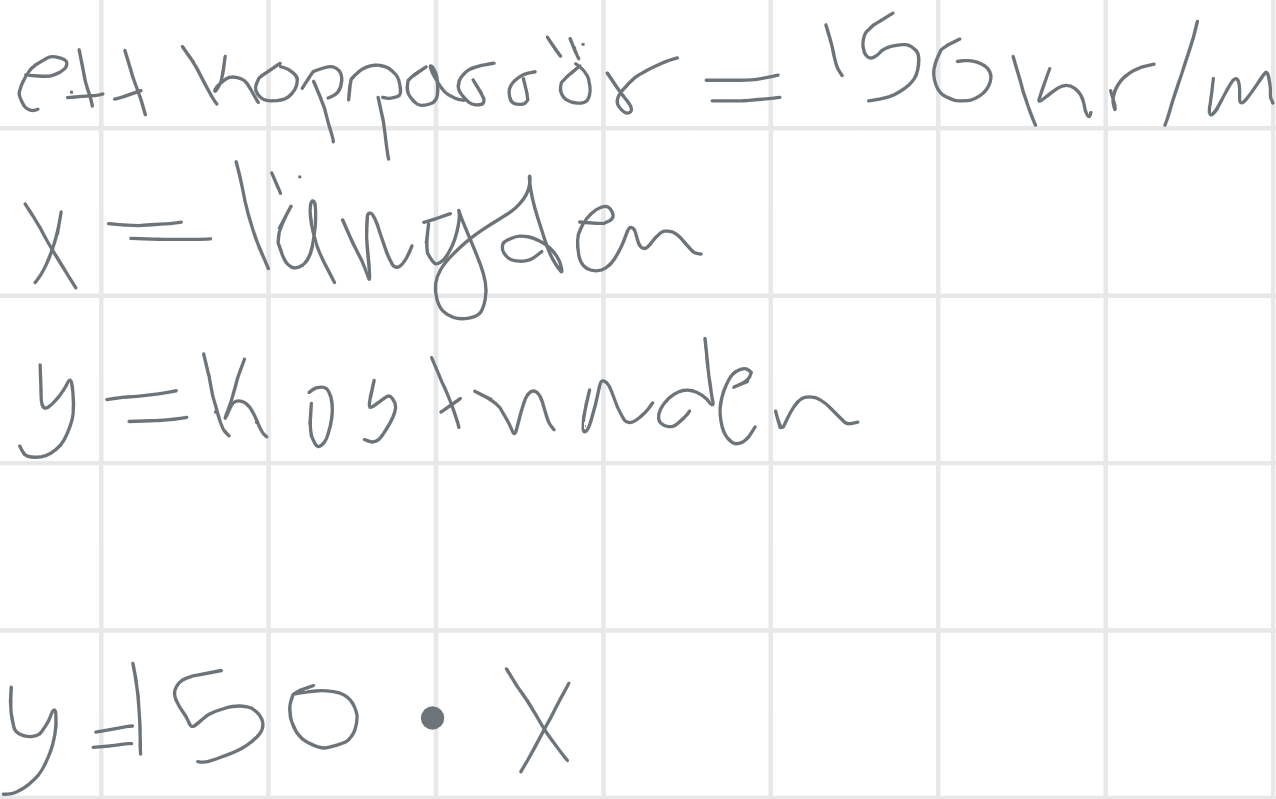 ett kopparrör = 150kr/m
x = längden
y = kostnaden
y = 150 • x